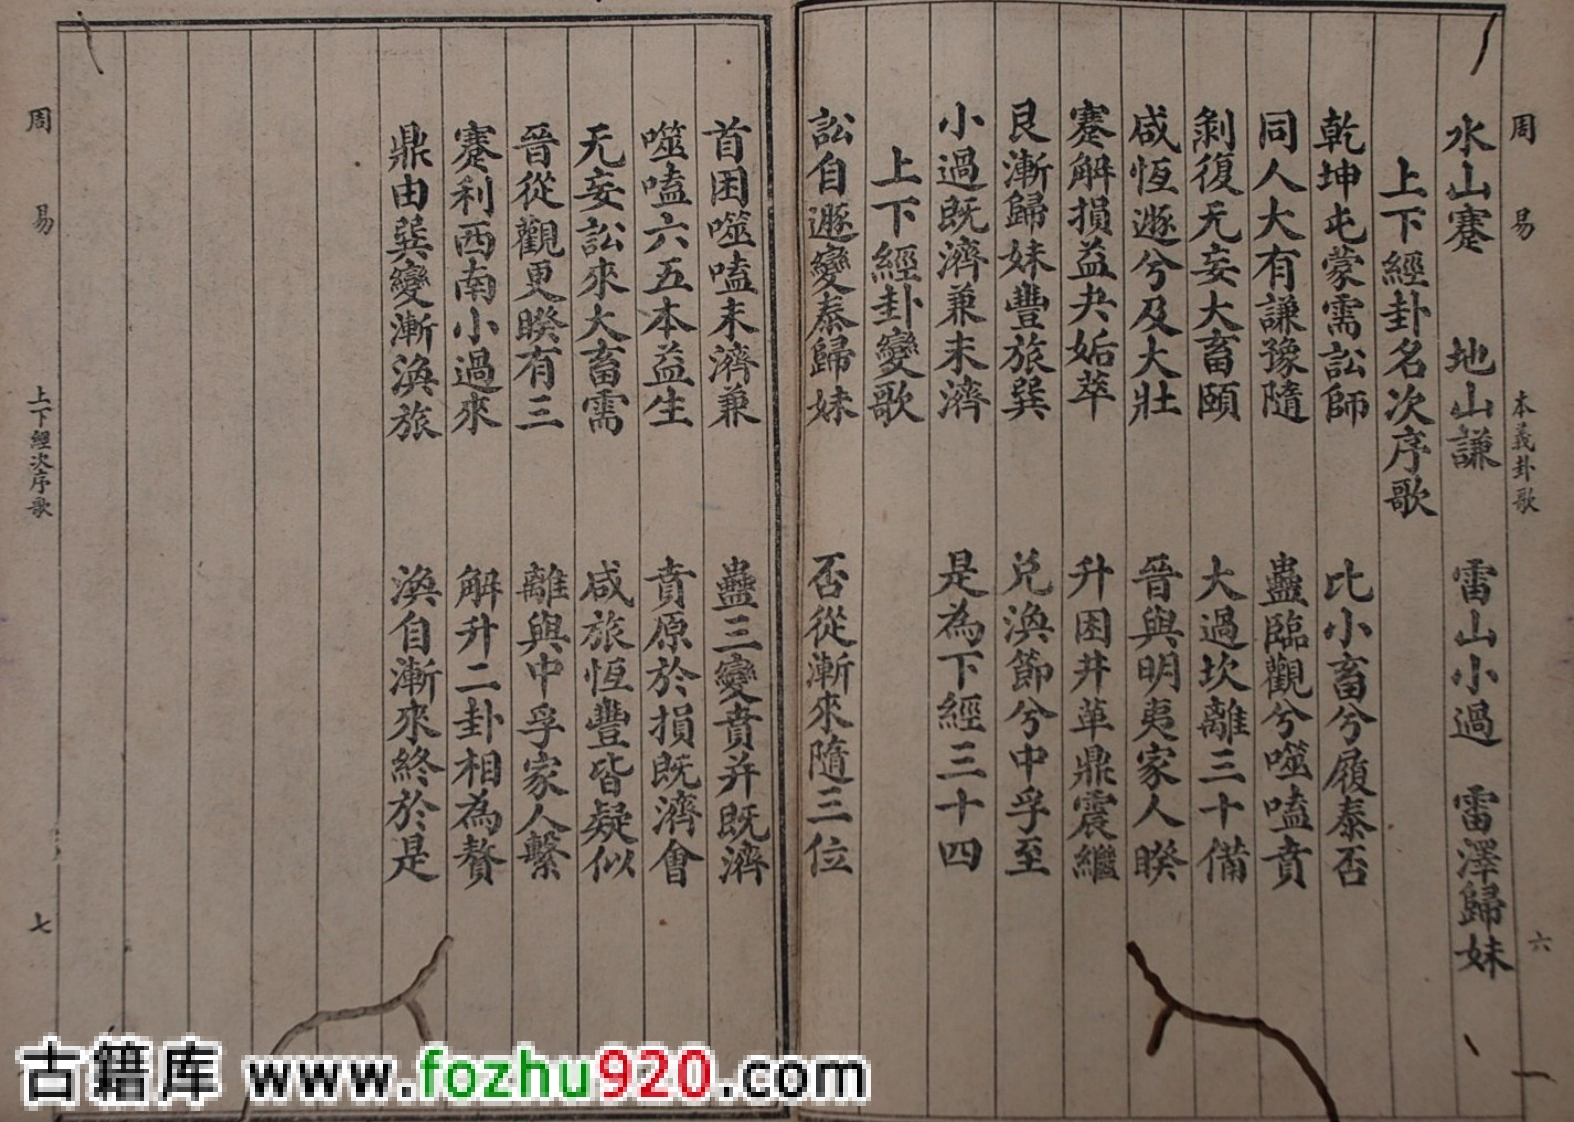 周易 本義卦歌 六
水山蹇 地山謙 雷山小過 雷澤歸妹
上下經卦名次序歌
乾坤屯蒙需訟師 比小畜兮履泰否
同人大有謙豫隨 蠱臨觀兮噬嗑賁
剝復无妄大畜頤 大過坎離三十備
咸恆遯兮及大壯 晉與明夷家人睽
蹇解損益夬姤萃 升困井革鼎震繼
艮漸歸妹豐旅巽 兌渙節兮中孚至
小過既濟兼未濟 是為下經三十四
上下經卦變歌
訟自遯變泰歸妹 否從漸來隨三位
首困噬嗑未濟兼 蠱三變賁井既濟
噬嗑六五本益生 賁原於損既濟會
无妄訟來大畜需 咸旅恆豐皆疑似
晉從觀更睽有三 離與中孚家人繫
蹇利西南小過來 解升二卦相為贅
鼎由巽變漸渙旅 渙自漸來終於是
周易 上下經次序歌 七
古籍库 www.fozhu920.com